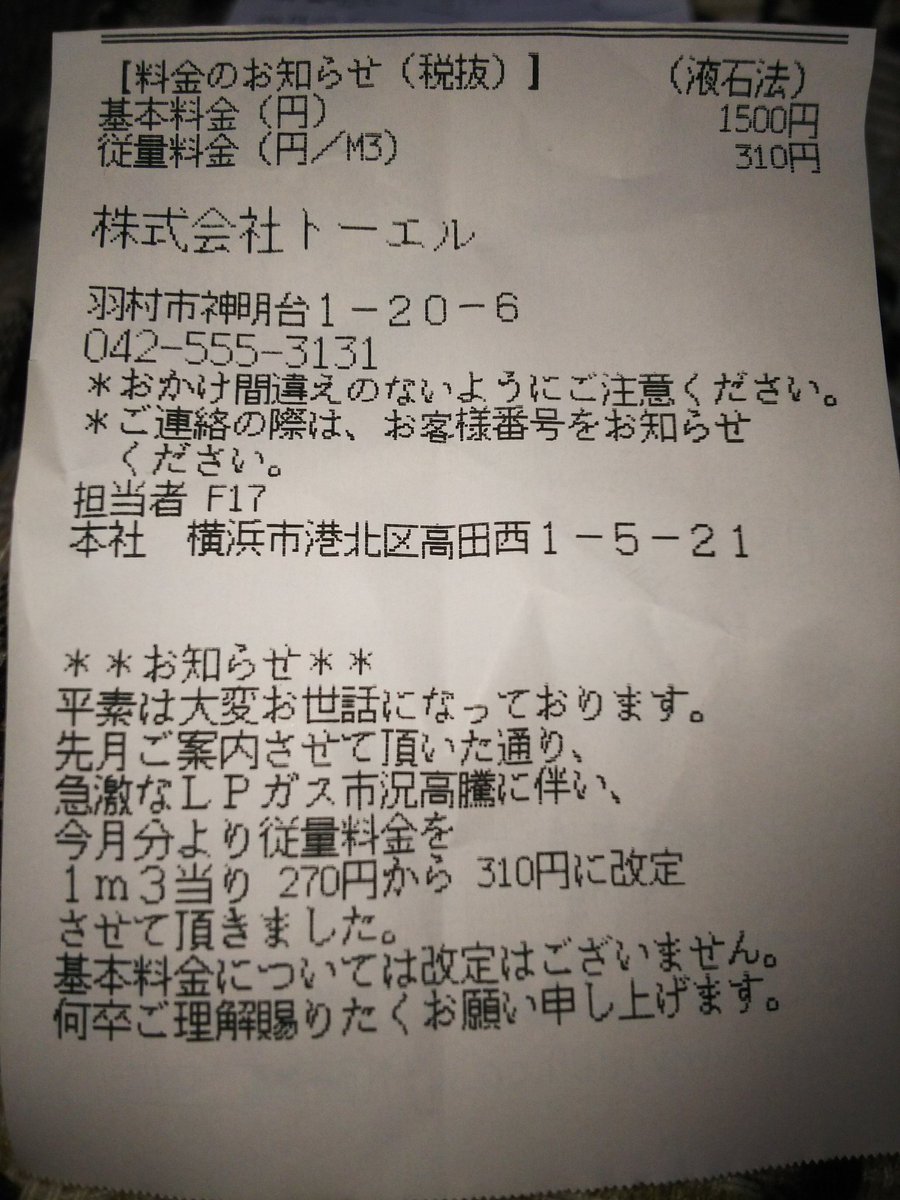 【料金のお知らせ（税抜）】 （液石法）
基本料金（円） 1500円
従量料金（円／M3） 310円
株式会社トーエル
羽村市神明台１－２０－６
042-555-3131
＊おかけ間違えのないようにご注意ください。
＊ご連絡の際は、お客様番号をお知らせ
ください。
担当者 F17
本社 横浜市港北区高田西１－５－２１
＊＊お知らせ＊＊
平素は大変お世話になっております。
先月ご案内させて頂いた通り、
急激なＬＰガス市況高騰に伴い、
今月分より従量料金を
１ｍ３当り 270円から 310円に改定
させて頂きました。
基本料金については改定はございません。
何卒ご理解賜りたくお願い申し上げます。